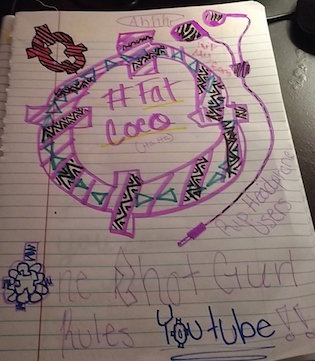 # Fat
Coco
(HaHa)
Rip Headphone
Users
One Shot Gurl
Rules Youtube!!